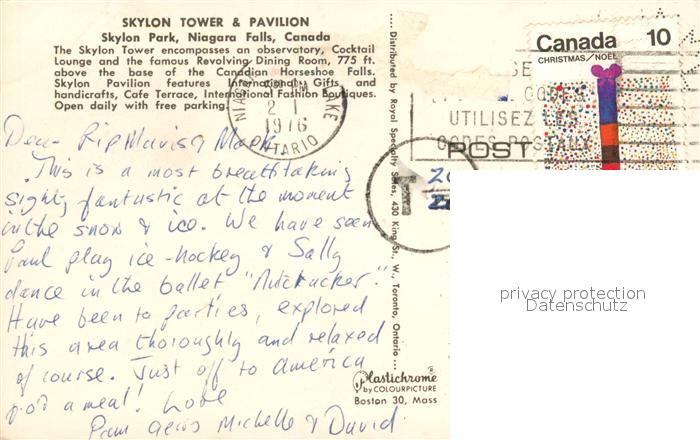 SKYLON TOWER & PAVILION
Skylon Park, Niagara Falls, Canada
The Skylon Tower encompasses an observatory, Cocktail
Lounge and the famous Revolving Dining Room, 775 ft.
above the base of the Canadian Horseshoe Falls.
Skylon Pavilion features International Gifts and
handicrafts, Cafe Terrace, International Fashion Boutiques.
Open daily with free parking.
Dear Rip Mavis & Mark
This is a most breathtaking
sight, fantastic at the moment
in the snow & ice. We have seen
Paul play ice-hockey & Sally
dance in the ballet "Nutcracker".
Have been to parties, explored
this area thoroughly and relaxed
of course. Just off to America
for a meal! Love
Pam Michelle & David
.... Distributed by Royal Specialty Sales, 430 King St., W., Toronto, Ontario ....
Plastichrome®
by COLOURPICTURE
Boston 30, Mass
NIAGARA
PM
2 I
1976
ONTARIO
UTILISEZ LES
CODES POSTAUX
Canada 10
CHRISTMAS/NOËL
POST
T
privacy protection
Datenschutz